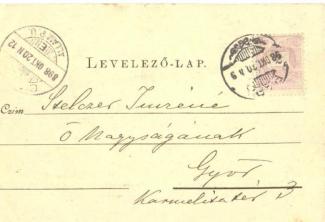 LEVELEZŐ-LAP.
898 OKT. 20 N. 12
98 OKT. 20 N 9
Czim Stelczer Imréné
Ő Nagyságának
Győr
Karmelita tér 3